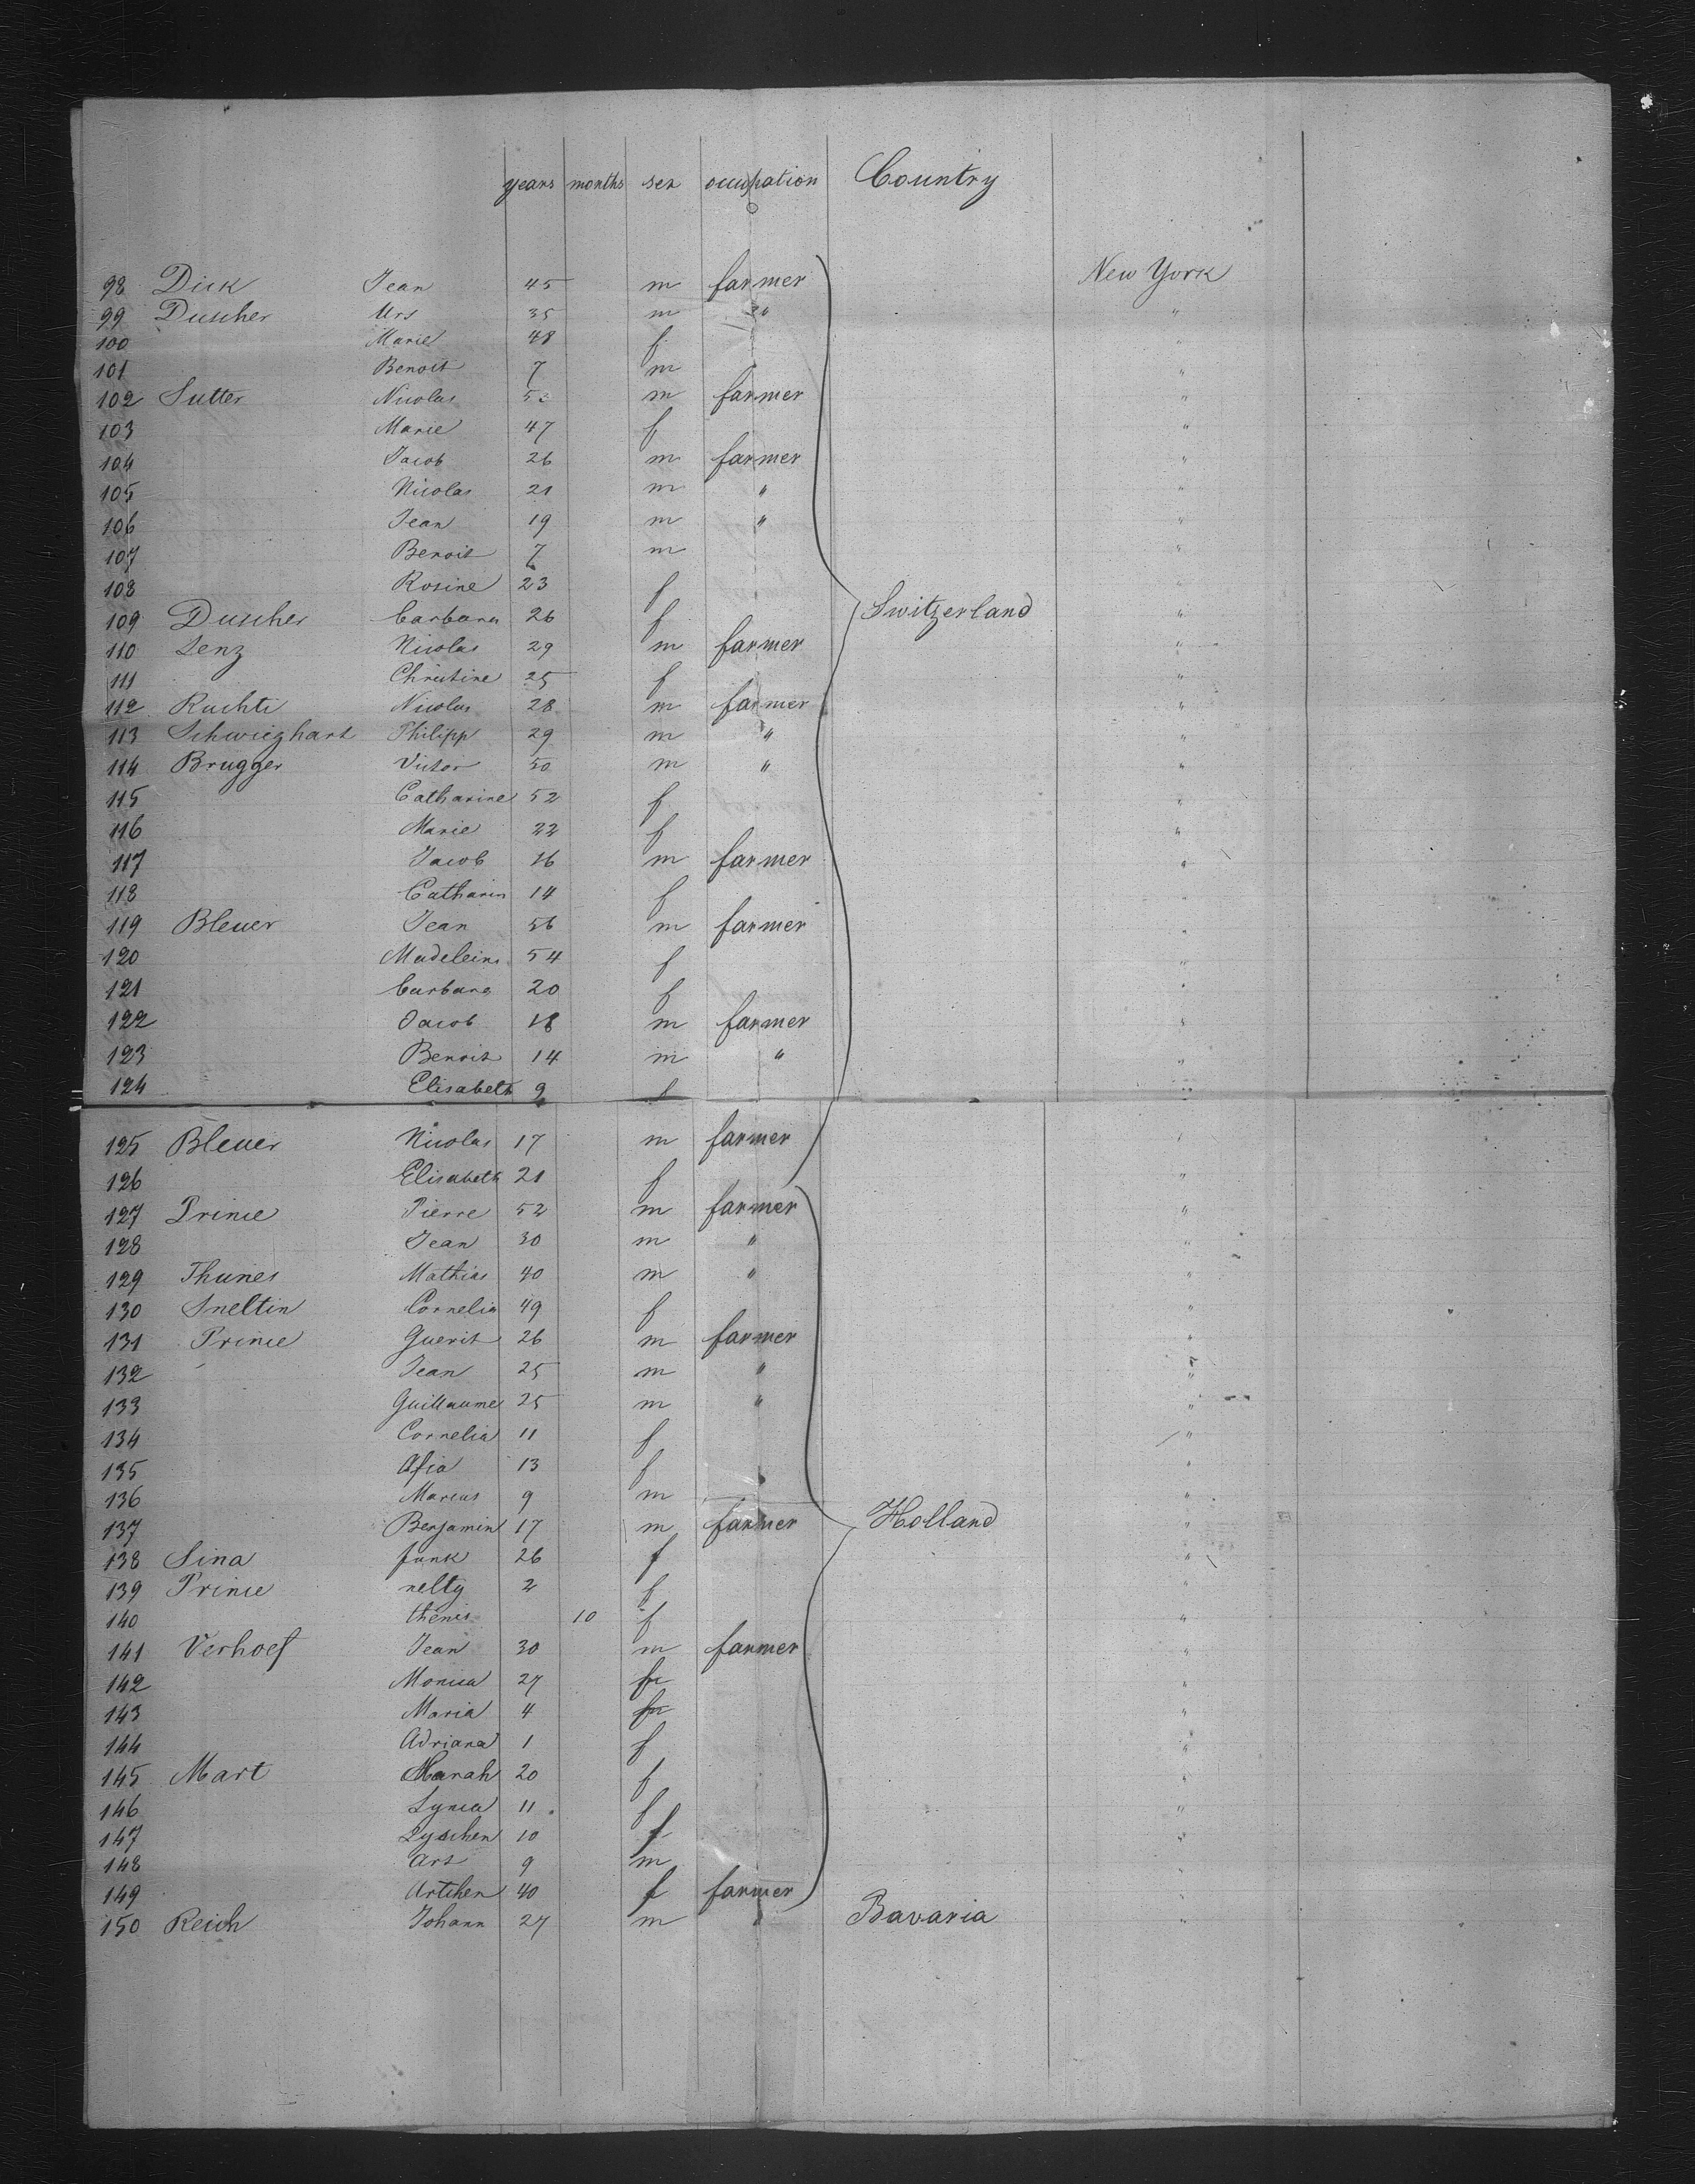 years months sex occupation Country
98 Dick Jean 45 m farmer New York
99 Duscher Urs 35 m " "
100 Marie 48 f "
101 Benoit 7 m "
102 Sutter Nicolas m farmer "
103 Marie 47 f "
104 Jacob 26 m farmer "
105 Nicolas 21 m " "
106 Jean 19 m " "
107 Benoit 7 m "
108 Rosine 23 f "
109 Duscher Barbara 26 f Switzerland "
110 Lenz Nicolas 29 m farmer "
111 Christine 25 f "
112 Ruchti Nicolas 28 m farmer "
113 Schwieghart Philipp 29 m " "
114 Brugger Victor 50 m " "
115 Catharine 52 f "
116 Marie 22 f "
117 Jacob 16 m farmer "
118 Catharin 14 f "
119 Bleuer Jean 56 m farmer "
120 Madeleine 54 f "
121 Barbara 20 f "
122 Jacob 18 m farmer "
123 Benoit 14 m " "
124 Elisabeth 9 f "
125 Bleuer Nicolas 17 m farmer "
126 Elisabeth 21 f "
127 Prince Pierre 52 m farmer "
128 Jean 30 m " "
129 Thunes Mathias 40 m " "
130 Sneltin Cornelia 49 f "
131 Prince Guerit 26 m farmer "
132 Jean 25 m " "
133 Guillaume 25 m " "
134 Cornelia 11 f "
135 Afia 13 f "
136 Marcus 9 m "
137 Benjamin 17 m farmer Holland "
138 Sina funk 26 f "
139 Prince nelty 2 f "
140 thenis 10 f "
141 Verhoef Jean 30 m farmer "
142 Monica 27 f "
143 Maria 4 f "
144 Adriana 1 f "
145 Mart Marah 20 f "
146 Lynca 11 f "
147 Lyschen 10 f "
148 Art 9 m "
149 Artchen 40 f farmer "
150 Reich Johann 27 m " Bavaria "